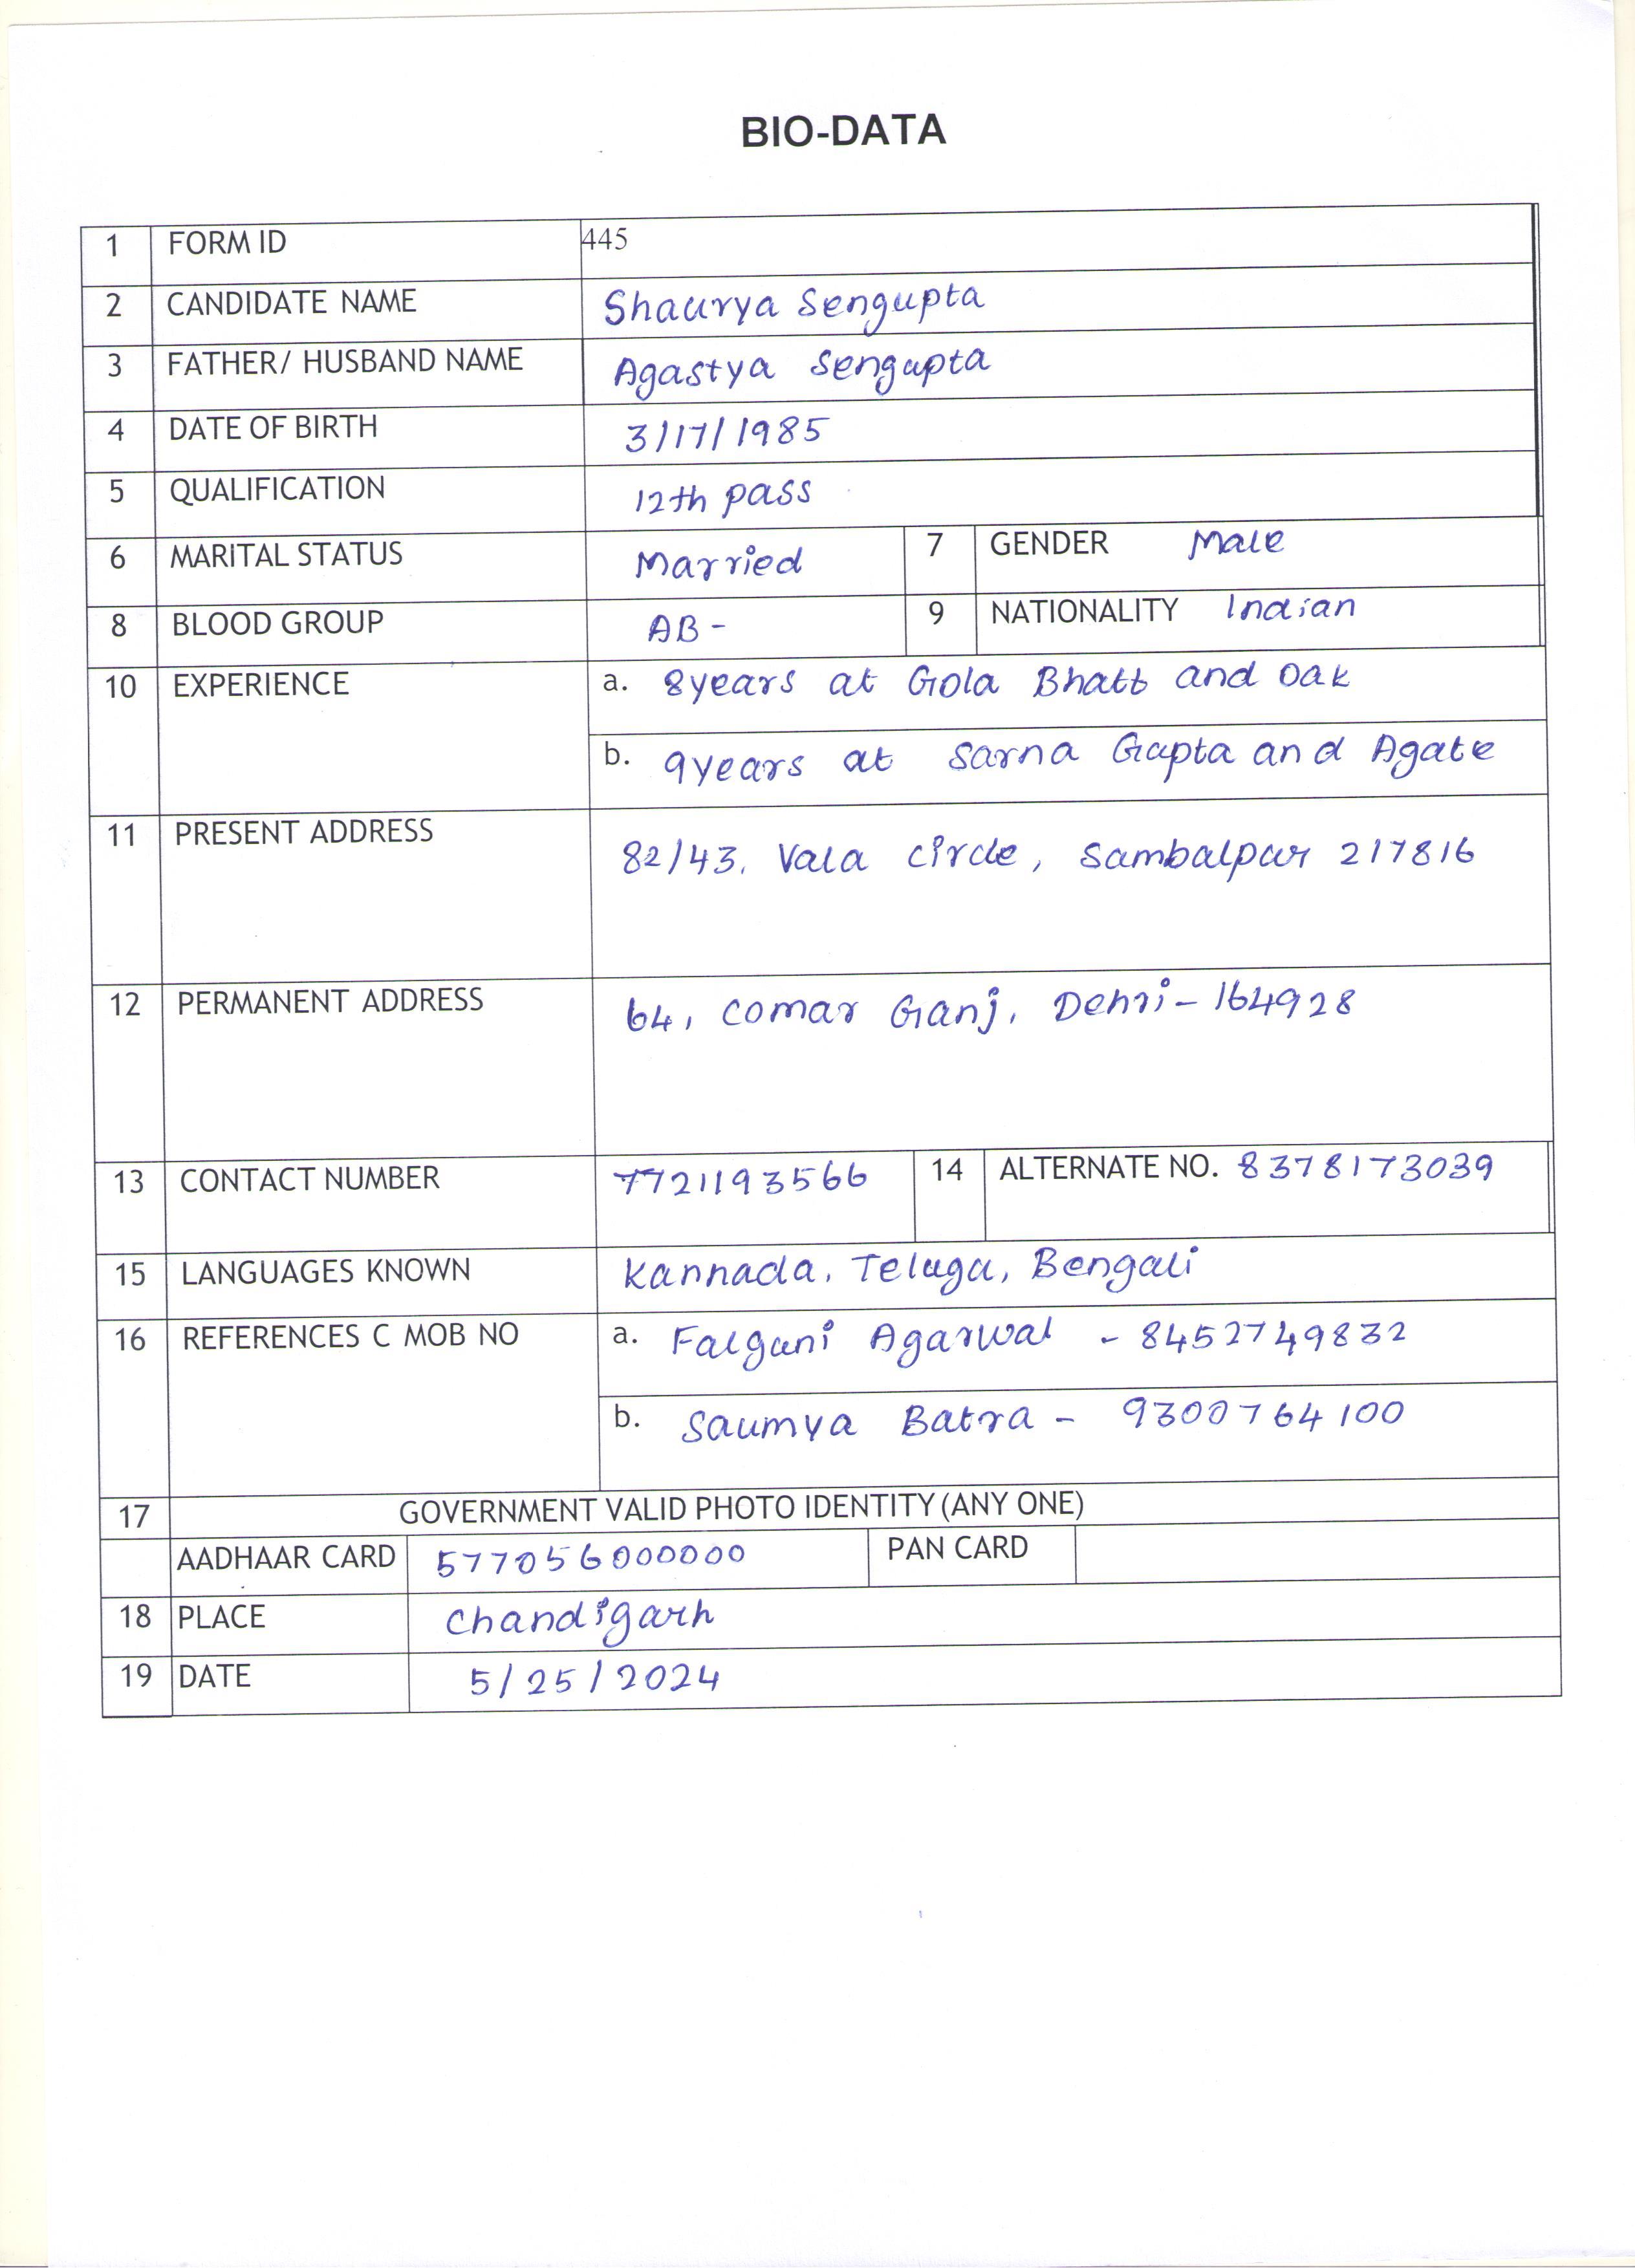 BIO-DATA
1 FORM ID 445
2 CANDIDATE NAME Shaurya Sengupta
3 FATHER/ HUSBAND NAME Agastya Sengupta
4 DATE OF BIRTH 3/17/1985
5 QUALIFICATION 12th pass
6 MARITAL STATUS Married 7 GENDER Male
8 BLOOD GROUP AB- 9 NATIONALITY Indian
10 EXPERIENCE a. 8years at Gola Bhatt and Oak
b. 9years at Sarna Gupta and Agate
11 PRESENT ADDRESS 82/43, Vala circle, Sambalpur 217816
12 PERMANENT ADDRESS 64, Comar Ganj, Dehri-164928
13 CONTACT NUMBER 7721193566 14 ALTERNATE NO. 8378173039
15 LANGUAGES KNOWN Kannada, Telugu, Bengali
16 REFERENCES C MOB NO a. Falguni Agarwal - 8452749832
b. Saumya Batra - 9300764100
17 GOVERNMENT VALID PHOTO IDENTITY (ANY ONE)
AADHAAR CARD 577056000000 PAN CARD
18 PLACE Chandigarh
19 DATE 5/25/2024